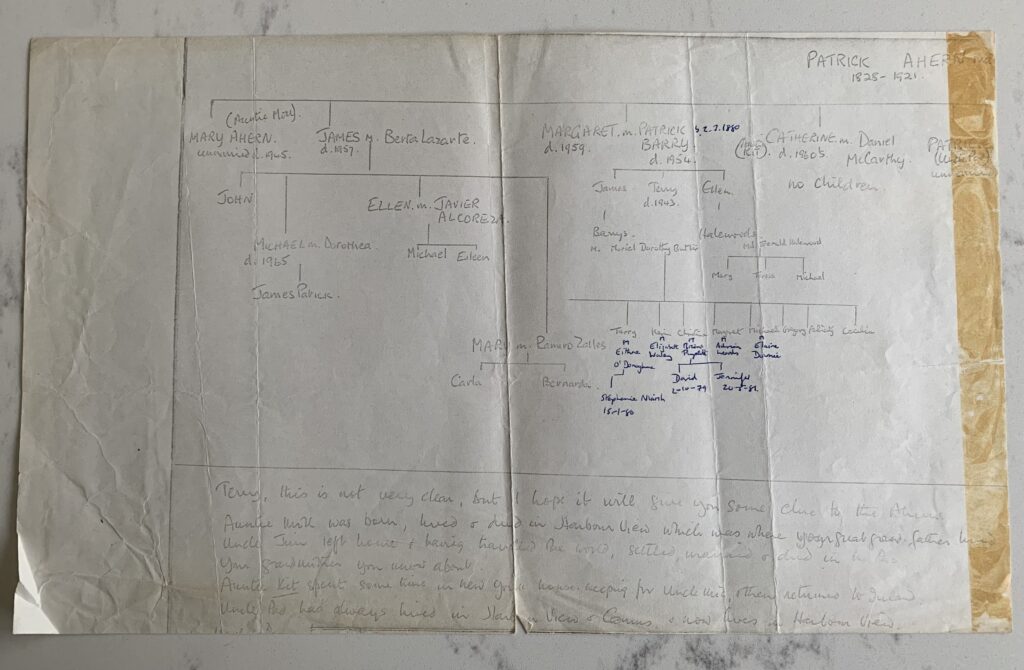 PATRICK AHERN
1828-1921.
(Auntie Moll)
MARY AHERN.
unmarried d. 1965.
JAMES m. Berta Lazarte.
d. 1957.
MARGARET. m. PATRICK b. 2.7.1880
d. 1959. BARRY
d. 1954.
(Kit)
CATHERINE m. Daniel
d. 1960's McCarthy.
no children
JOHN
ELLEN. m. JAVIER
ALCOREZA.
Michael Eileen
MICHAEL m. Dorothea.
d. 1965
James Patrick.
James Terry Ellen.
d. 1943.
Barrys.
m. Muriel Dorothy Butler
(Halewoods)
Mary Teresa Michael
MARY m. Ramiro Zalles
Carla Bernardo.
Terry Kevin Margaret Michael Gregory Felicity
m
Eithne
O'Donoghue
Elizabeth
Adrian
Elaine
Stephanie Niamh
15-1-80
David
2-10-79
Jennifer
Terry, this is not very clear, but I hope it will give you some clue to the Aherns
Auntie Moll was born, lived & died in Harbour View which was where your great grand-father lived
Uncle Jim left home & having travelled the world, settled, married & died in
Your grandmother you know about.
Auntie Kit spent some time in new york house-keeping for Uncle & then returned to
Uncle had always lived in View & & now lives in Harbour View.